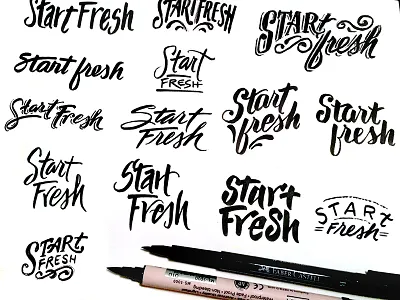 Start Fresh
START FRESH
START fresh
Start fresh
Start
FRESH
Start Fresh
Start
Fresh
Start
fresh
Start
fresh
Start
Fresh
Start
Fresh
Start
Fresh
START
Fresh
START
FRESH
FABER-CASTELL